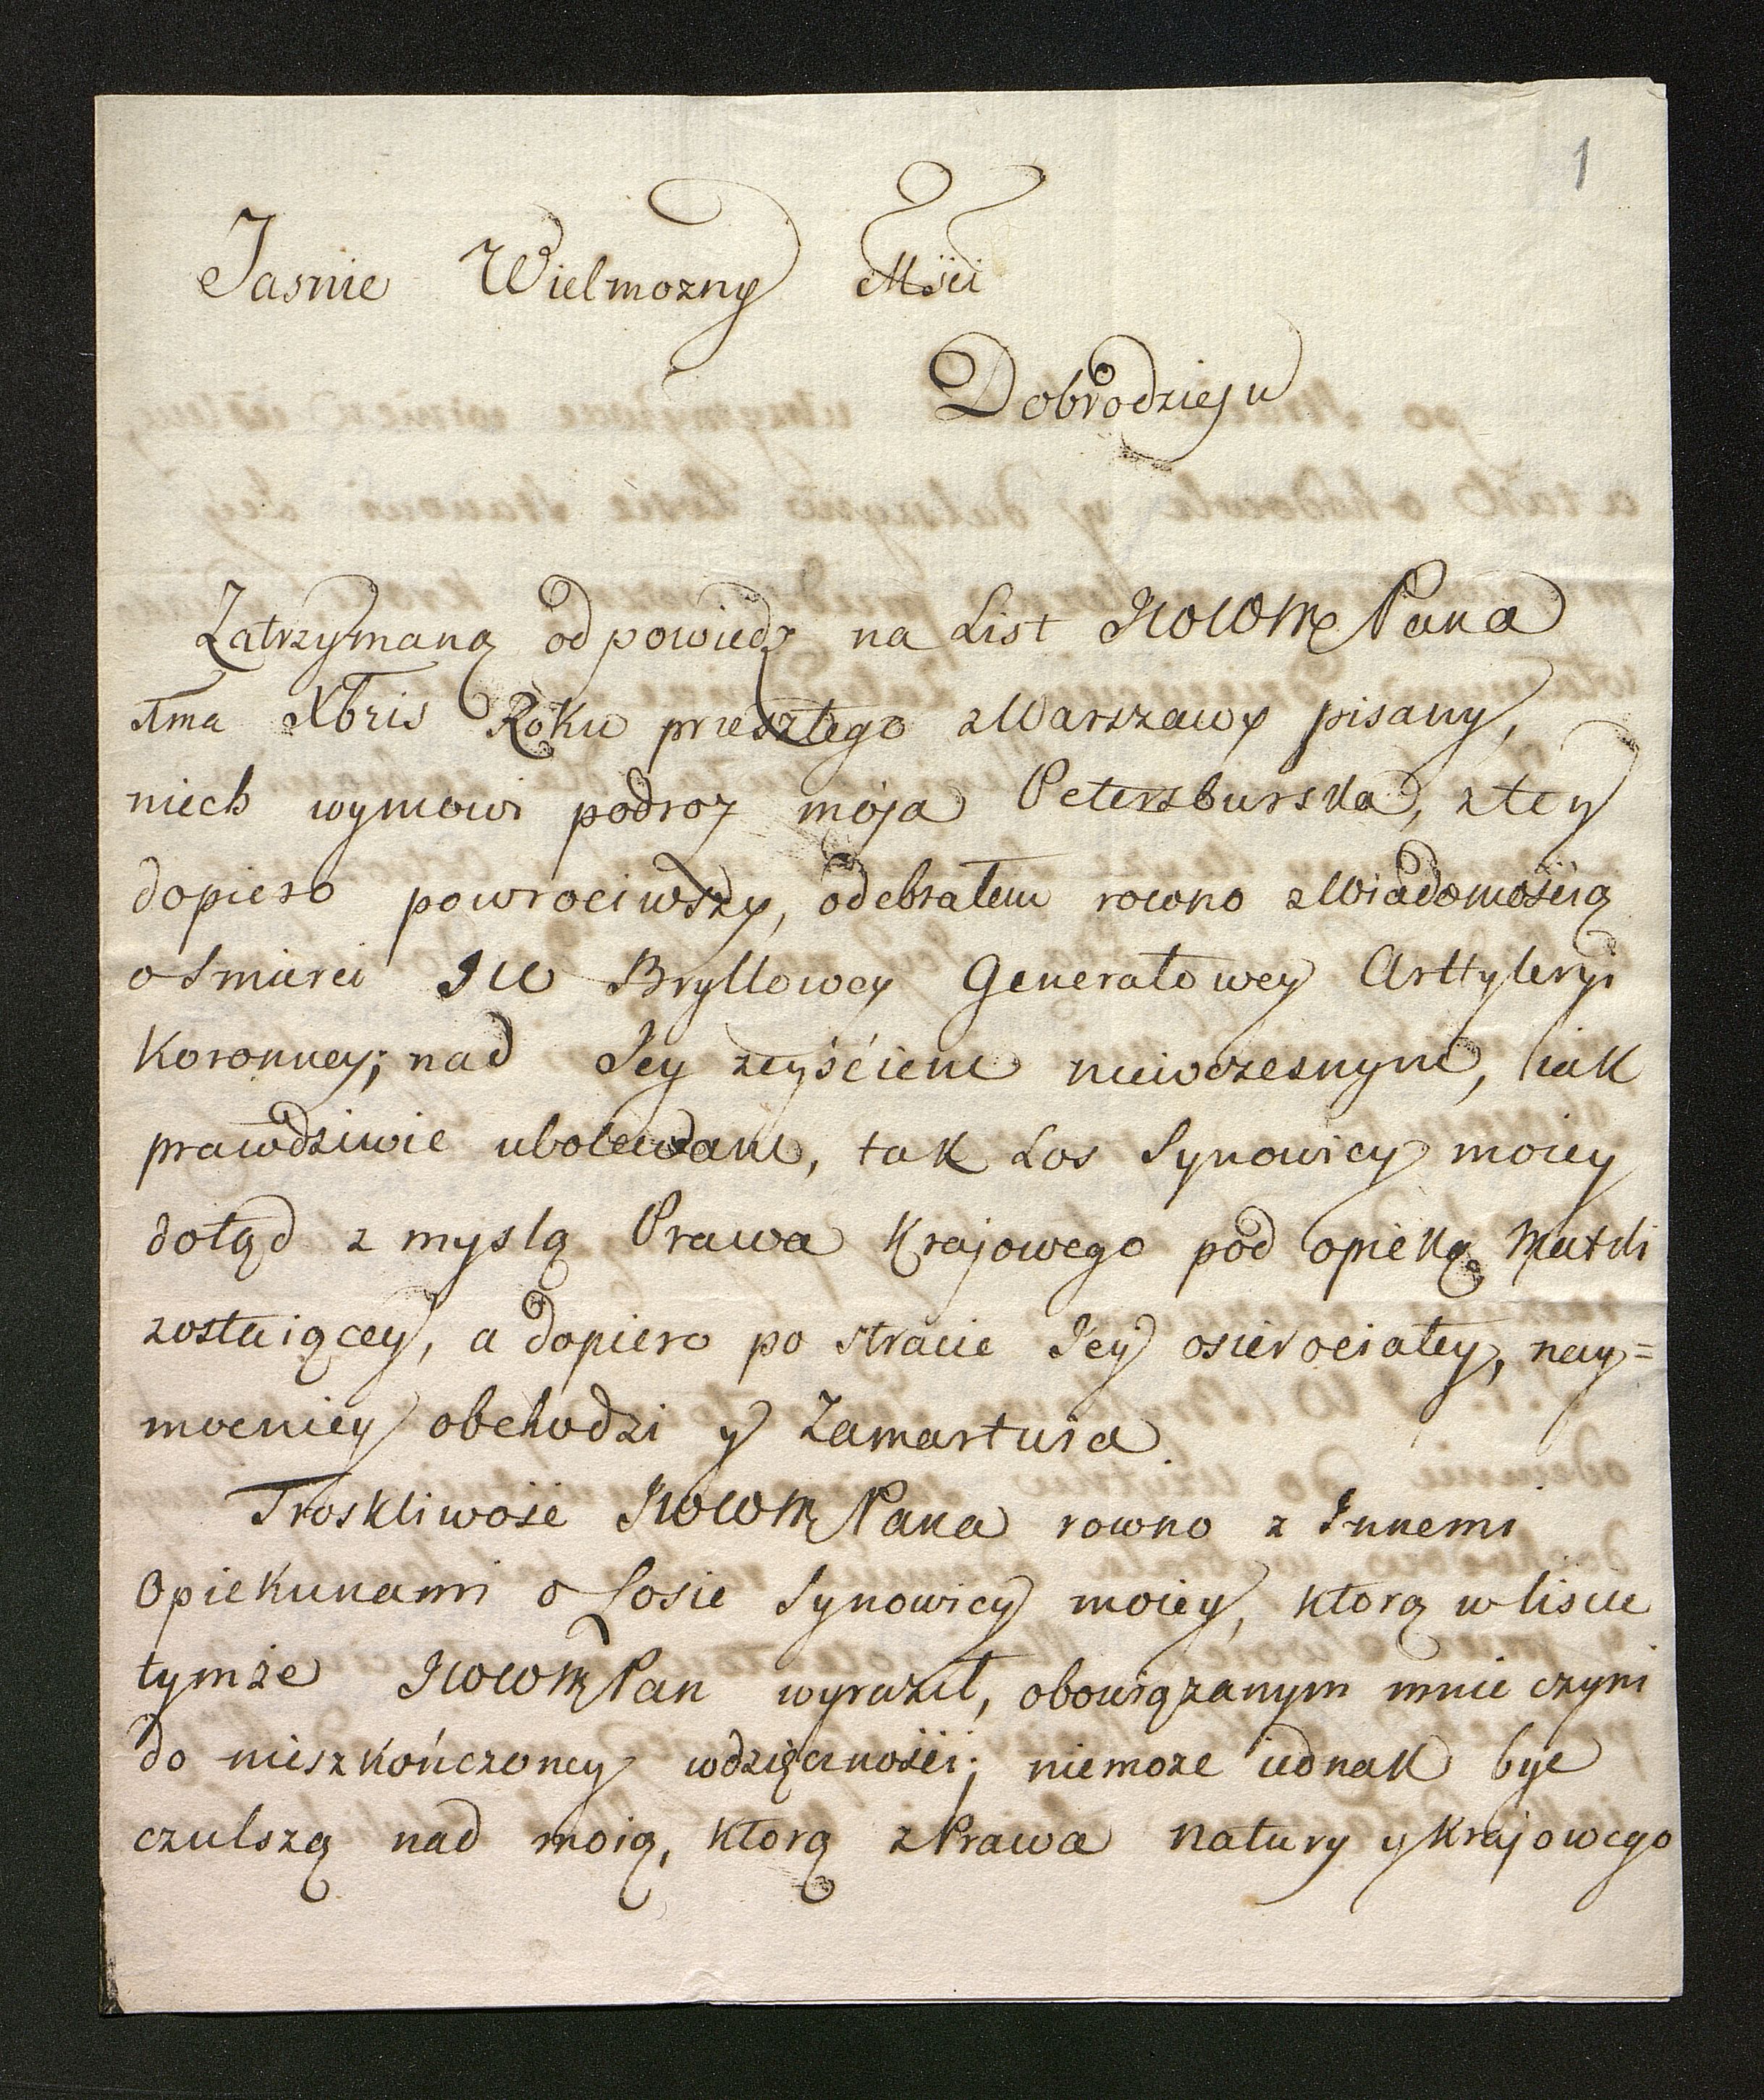 1
Jasnie Wielmozny Mści
Dobrodzieju
Zatrzymaną odpowiedz na List JWWM Pana
Xbris Roku przeszłego z Warszawy pisany,
niech wymowi podroz moja Petersburska, z tey
dopiero powrociwszy, odebrałem rowno z Wiadomością
o Smierci JW Bryllowey Generałowey Arttyleryi
Koronney; nad Jey zeyściem niewczesnym, iak
prawdziwie ubolewam, tak Los Synowicy moiey
dotąd z myslą Prawa Krajowego pod opieką Matki
zostaiącey, a dopiero po stracie Jey osierociałey, nay=
mocniey obchodzi y Zamartwia.
Troskliwość JWWM Pana rowno z Innemi
Opiekunami o Losie Synowicy moiey, ktorą w liscie
tymże JWWM Pan wyraził, obowiązanym mnie czyni
do nieszkończoney wdzięczności; niemoze iednak byc
czulszą nad moią, ktorą z Prawa natury y Krajowego